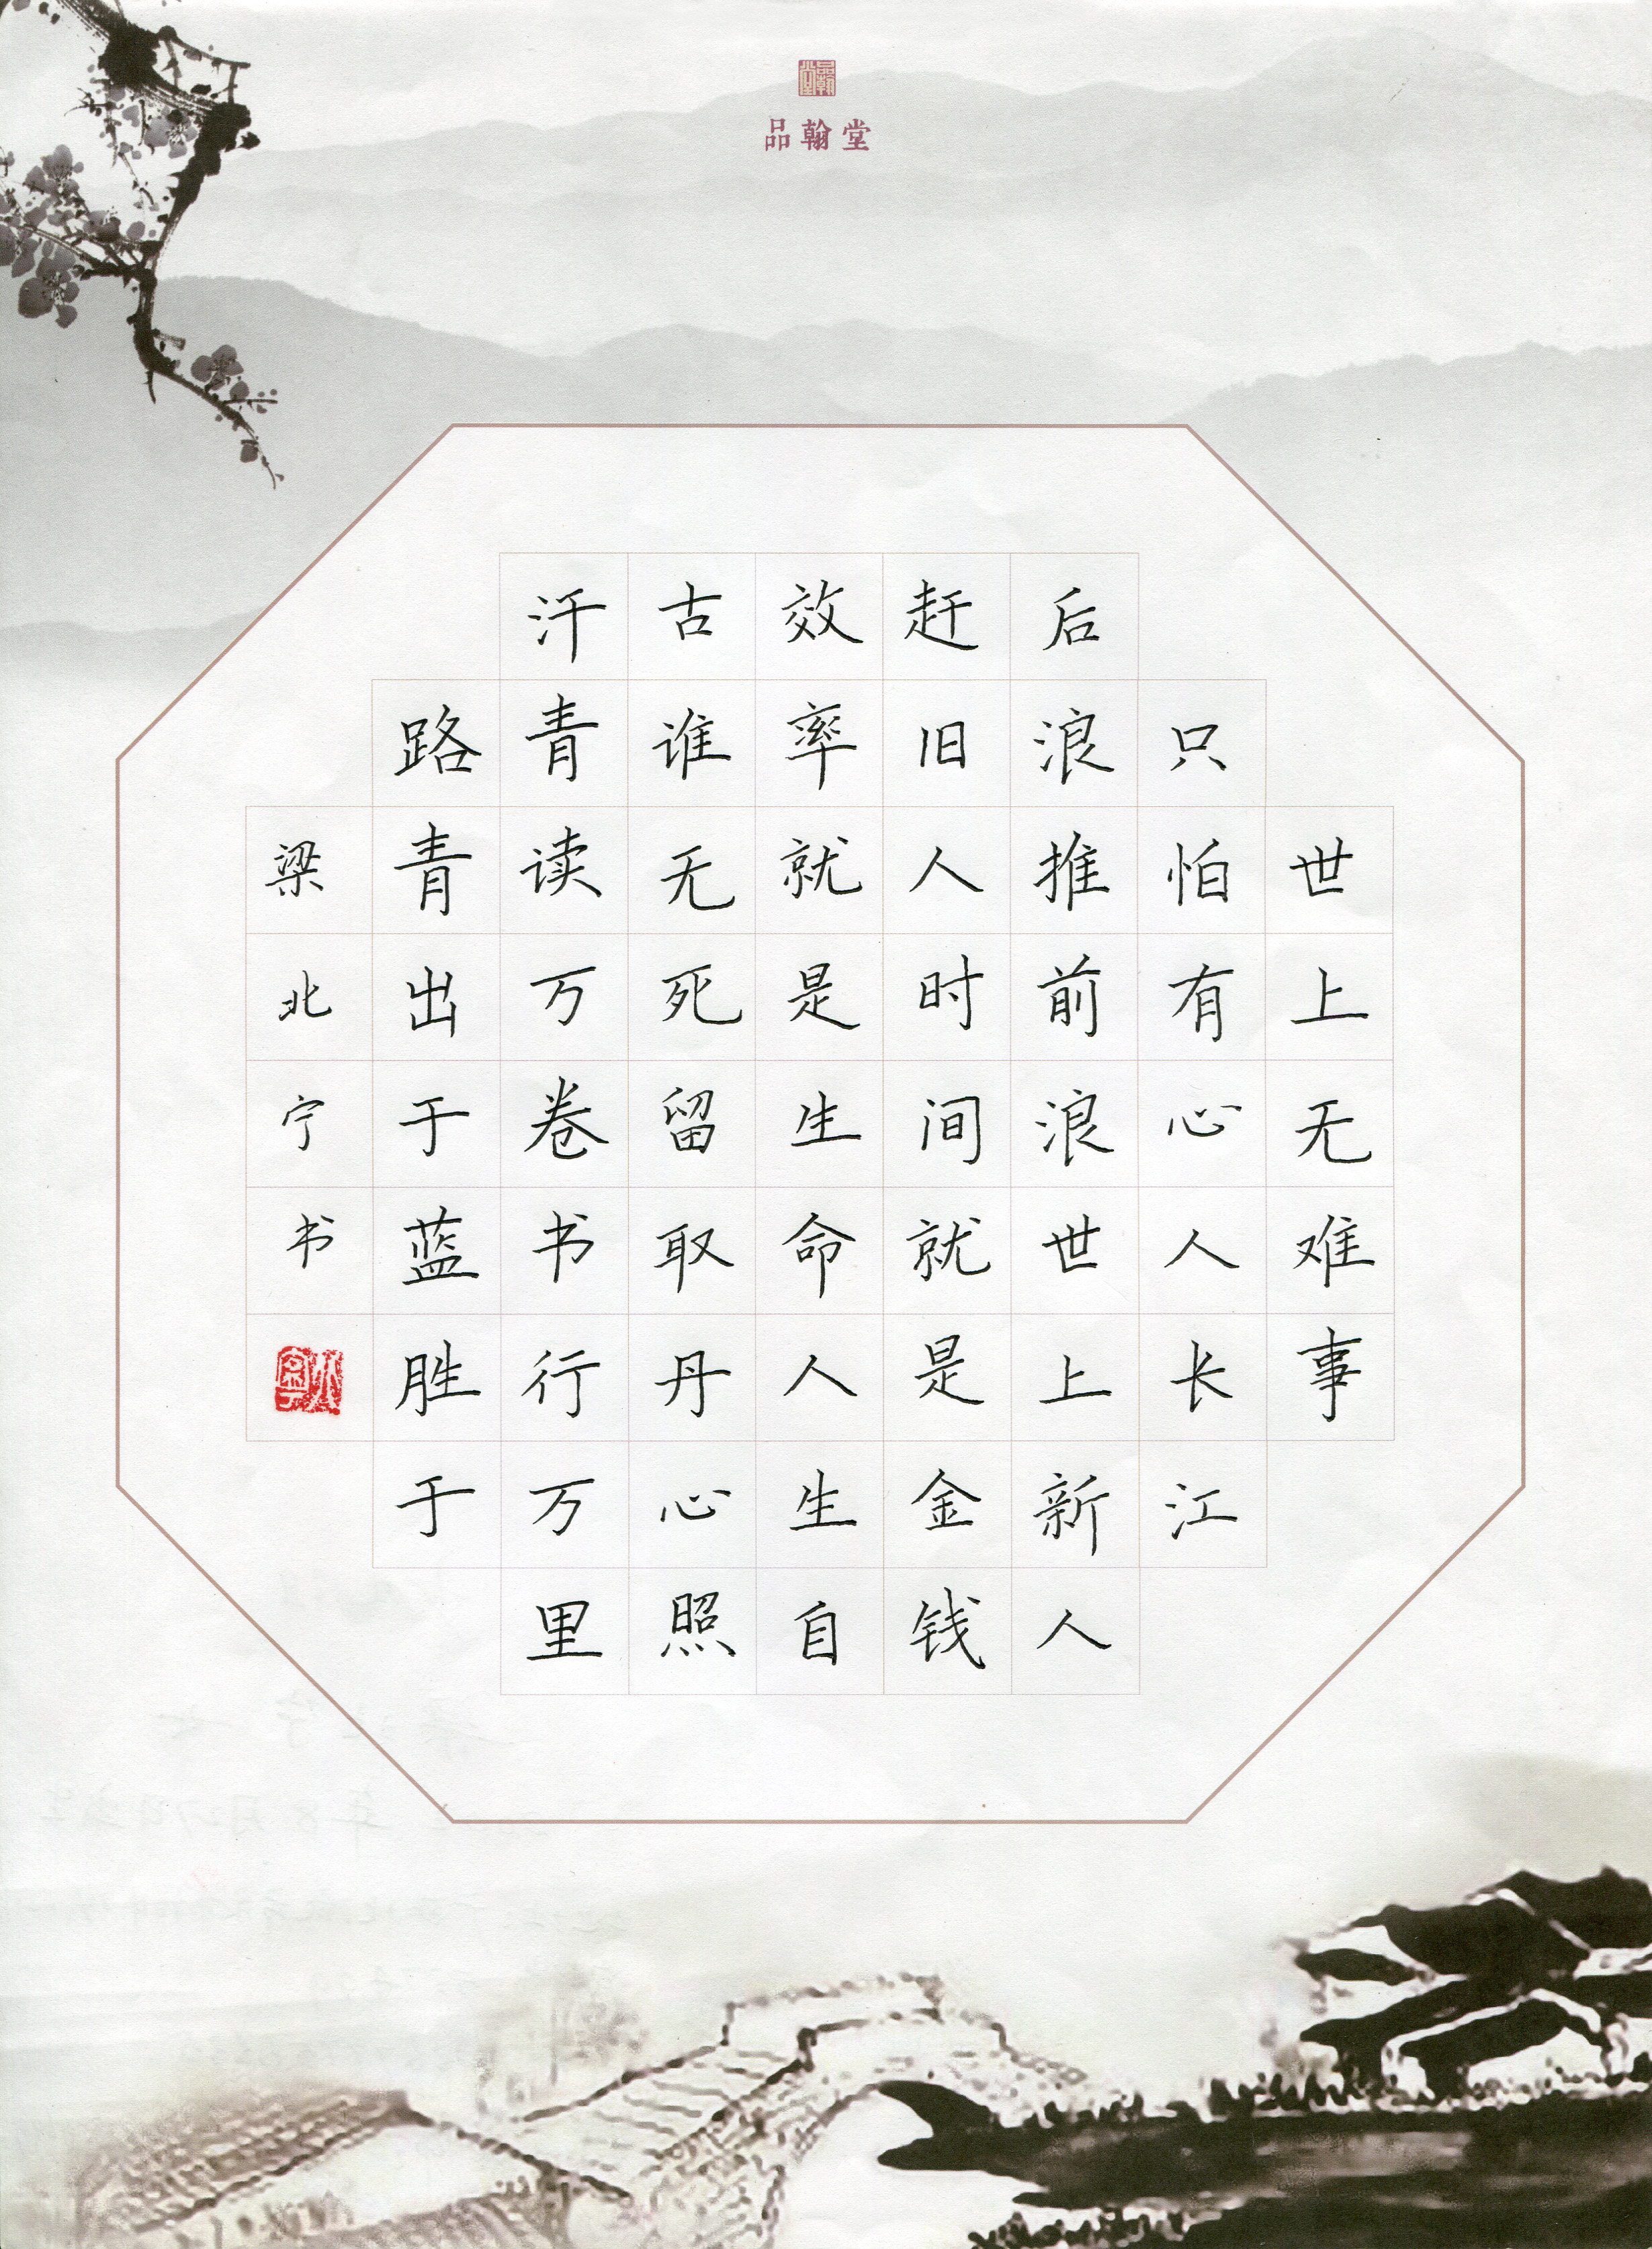 品翰堂
世上无难事
只怕有心人长江
后浪推前浪世上新人
赶旧人时间就是金钱
效率就是生命人生自
古谁无死留取丹心照
汗青读万卷书行万里
路青出于蓝胜于
梁北宁书